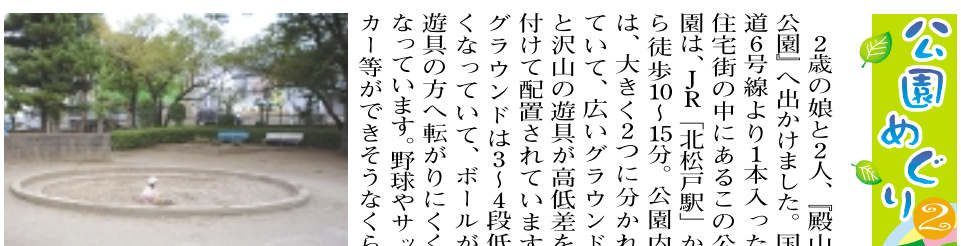 公園めぐり2
２歳の娘と２人、『殿山
公園』へ出かけました。国
道６号線より１本入った
住宅街の中にあるこの公
園は、ＪＲ「北松戸駅」か
ら徒歩10～15分。公園内
は、大きく２つに分かれ
ていて、広いグラウンド
と沢山の遊具が高低差を
付けて配置されています
グラウンドは３～４段低
くなっていて、ボールが
遊具の方へ転がりにくく
なっています。野球やサッ
カー等ができそうなくら